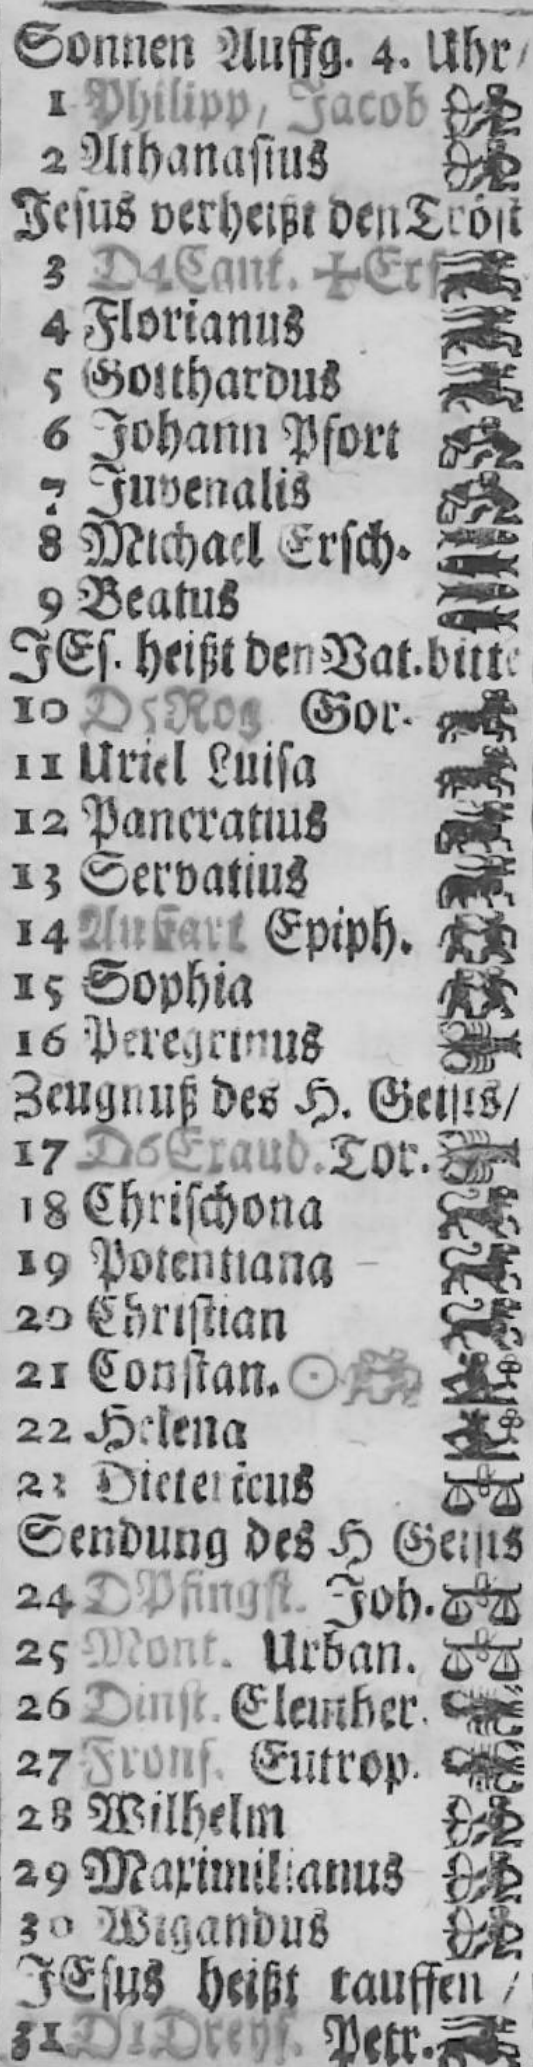 Sonnen Auffg. 4. Uhr/
1 Philipp, Jacob
2 Athanasius
Jesus verheißt den Tröst
3 D4Cant. ✠Erf
4 Florianus
5 Gotthardus
6 Johann Pfort
7 Juvenalis
8 Michael Ersch.
9 Beatus
JEs. heißt den Vat. bitte
10 D5Rog Gor.
11 Uriel Luisa
12 Pancratius
13 Servatius
14 Auffart Epiph.
15 Sophia
16 Peregrinus
Zeugnuß des H. Geists/
17 D6Exaud. Tor.
18 Chrischona
19 Potentiana
20 Christian
21 Constan. ☉
22 Helena
23 Dietericus
Sendung des H Geists
24 DPfingst. Joh.
25 Mont. Urban.
26 Dinst. Eleuther.
27 Fronf. Eutrop.
28 Wilhelm
29 Maximilianus
30 Wigandus
JEsus heißt tauffen /
31 D1Dreyf. Petr.